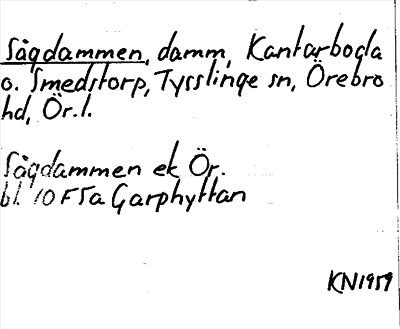 Sågdammen, damm, Kantarboda
o. Smedstorp, Tysslinge sn, Örebro
hd, Ör. l.
Sågdammen ek Ör.
bl. 10 F 5a Garphyttan
KN1959